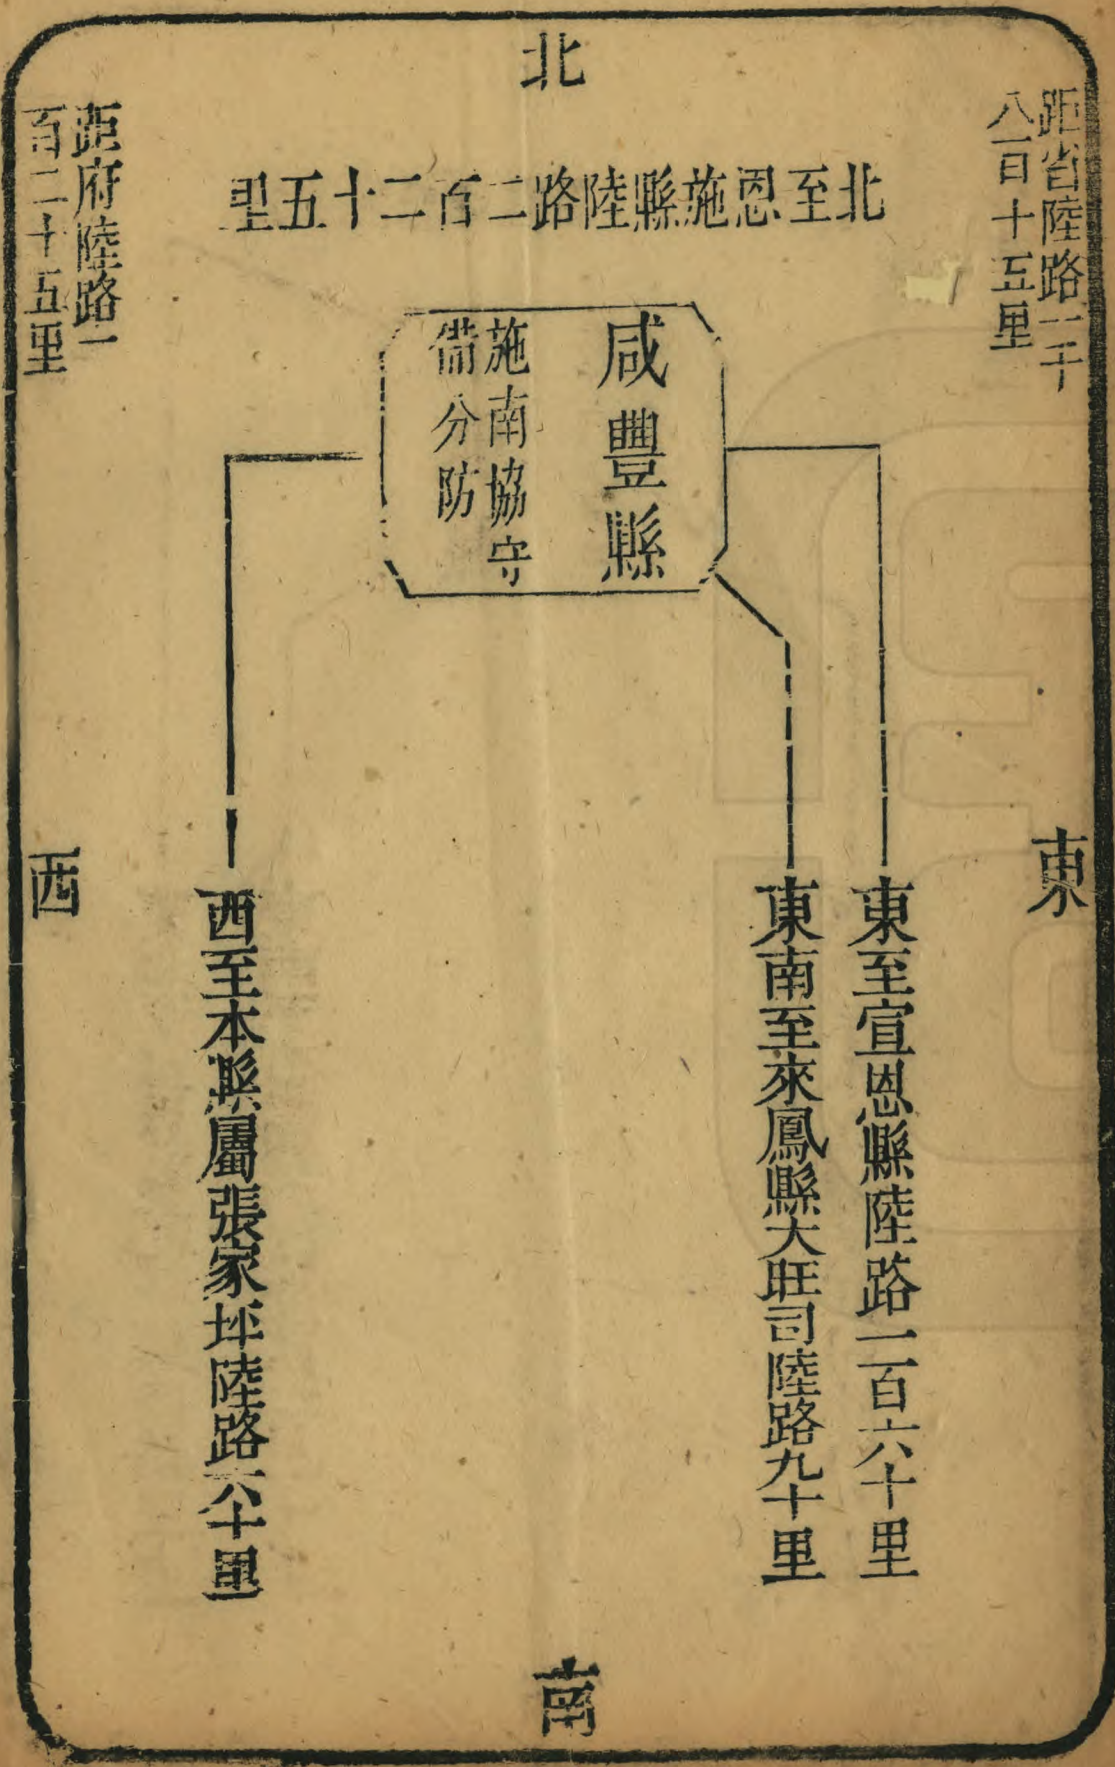 北
距省陸路一千
八百十五里
北至恩施縣陸路二百二十五里
距府陸路一
百二十五里
咸豐縣
施南協守
備分防
東
東至宣恩縣陸路一百六十里
東南至來鳳縣大旺司陸路九十里
西至本縣屬張家坪陸路六十里
西
南